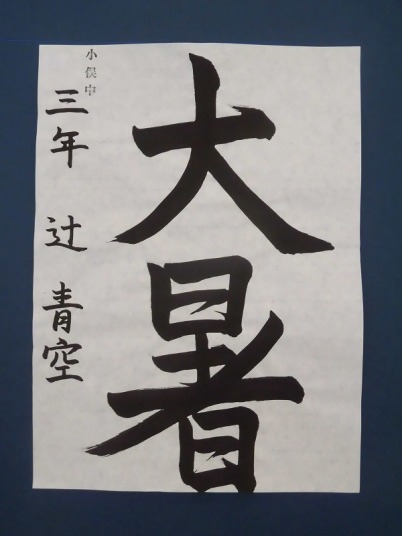 大暑
小俣中
三年 辻 青空